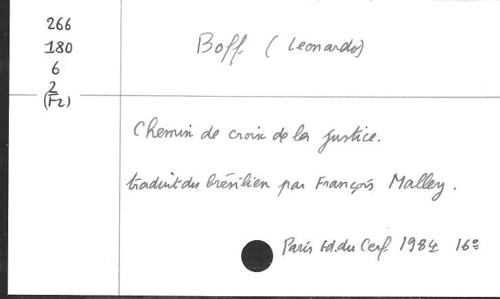 266
180
6
2
(F2)
Boff (Leonardo)
Chemin de croix de la justice.
traduit du brésilien par François Malley.
Paris Ed. du Cerf 1984 16º